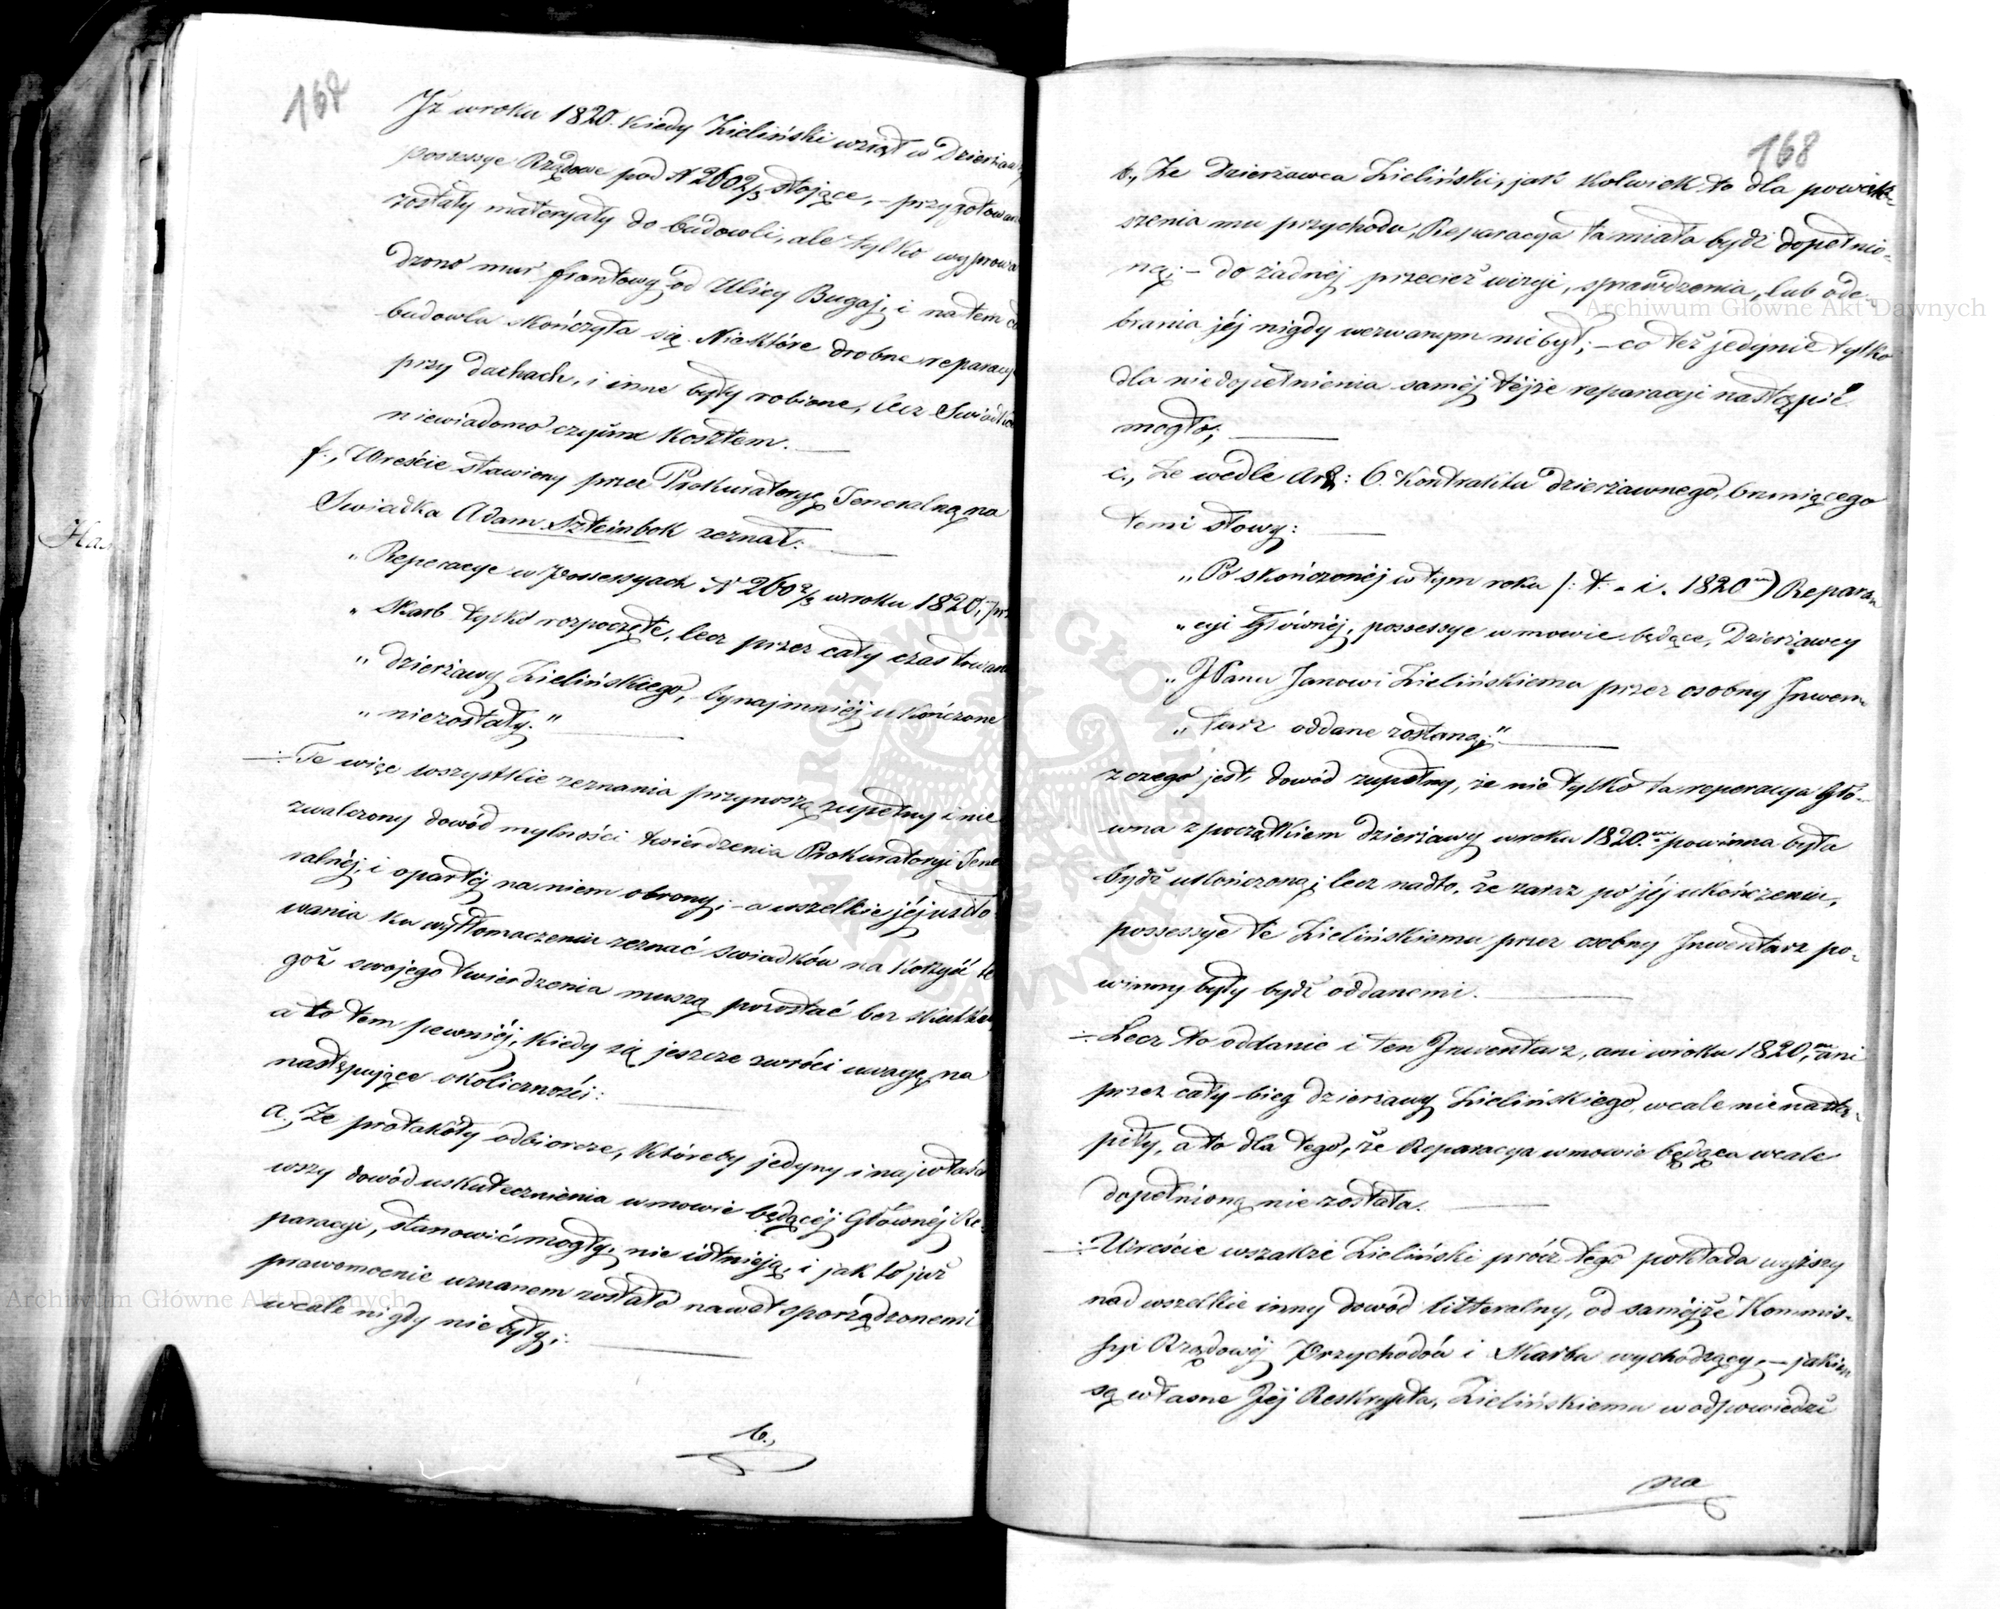 167
Iż w roku 1820. kiedy Zieliński wziął w Dzierżawę
possessye Rządowe pod N 260 2/3 stojące, – przygotowane
zostały materyały do budowli, ale tylko wyprowa
dzono mur frontowy od Ulicy Bugaj, i na tem
budowla skończyła się. Niektóre drobne reparacye
przy dachach, i inne były robione, lecz Swiadkowi
niewiadomo czyjém kosztem.
f., Wreście stawiony przez Prokuratoryę Jeneralną na
Swiadka Adam Szteinbok zeznał:
„Reperacye w Possessyach N 260 2/3 w roku 1820, przez
„Skarb tylko rozpoczęte, lecz przez cały czas trwania
„dzierżawy Zielińskiego, bynajmniéj ukończone
„niezostały."
Te więc wszystkie zeznania przynoszą zupełny i nie
zwalczony dowód mylności twierdzenia Prokuratoryi Jene
ralnéj, i opartéj na niem obrony; – a wszelkie jéj usiło
wania ku wytłomaczeniu zeznać swiadków na korzyść te
goż swojego twierdzenia muszą pozostać bez skutku
a to tem pewniéj, kiedy się jeszcze zwróci uwagę na
następujące okoliczności:
a., Że protokóły odbiorcze, któreby jedyny i najwłaści
wszy dowód uskutecznienia w mowie będącéj Głównéj Re-
paracyi, stanowić mogły, nie istnieją, i jak to już
prawomocnie uznanem zostało nawet sporządzonemi
wcale nigdy nie były;
b.,
168
b., Że Dzierżawca Zieliński, jak kolwiek to dla powięk-
szenia mu przychodu, Reparacya ta miała bydź dopełnio-
ną; – do żadnéj przecież wizyi, sprawdzenia, lub ode
brania jéj nigdy wezwanym niebył; – co też jedynie tylko
dla niedopełnienia saméj téjże reparacyi nastąpić
mogło;
c., Że wedle Art: 6. Kontraktu dzierżawnego, brzmiącego
temi słowy:
„Po skończonéj w tym roku /: t. i. 1820 m) Repara
„cyi Głównéj, possessye w mowie będące, Dzierżawcy
„JPanu Janowi Zielińskiemu przez osobny Inwen
„tarz oddane zostaną;"
z czego jest dowód zupełny, że nie tylko ta reperacya Głó-
wna z początkiem dzierżawy w roku 1820.m powinna była
bydź ukończoną; lecz nadto, że zaraz po jéj ukończeniu,
possessye te Zielińskiemu przez osobny Inwentarz po-
winny były bydź oddanemi.
Lecz to oddanie i ten Inwentarz, ani w roku 1820,m ani
przez cały bieg dzierżawy Zielińskiego, wcale nie nastą-
piły, a to dla tego, że Reparacya w mowie będąca wcale
dopełnioną nie została.
Wreście wszakże Zieliński prócz tego pokłada wyższy
nad wszelkie inny dowód litteralny, od saméjże Kommis-
syi Rządowéj Przychodów i Skarbu wychodzący, – jakiem
są własne Jéj Reskrypta, Zielińskiemu w odpowiedzi
na